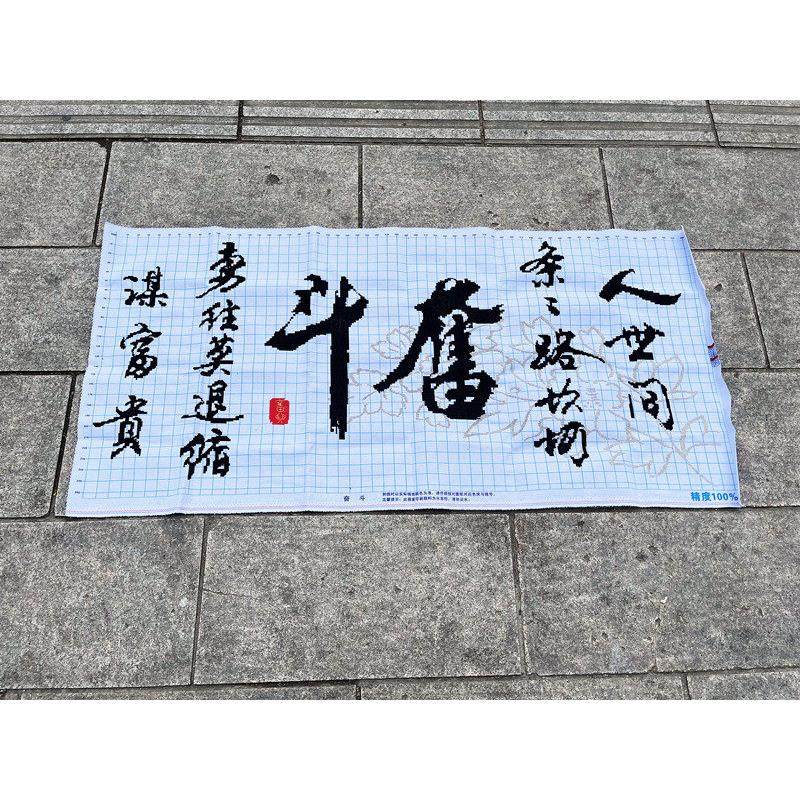 人世间
条々路坎坷
奮斗
勇往莫退缩
谋富貴
奋 斗
精度100%